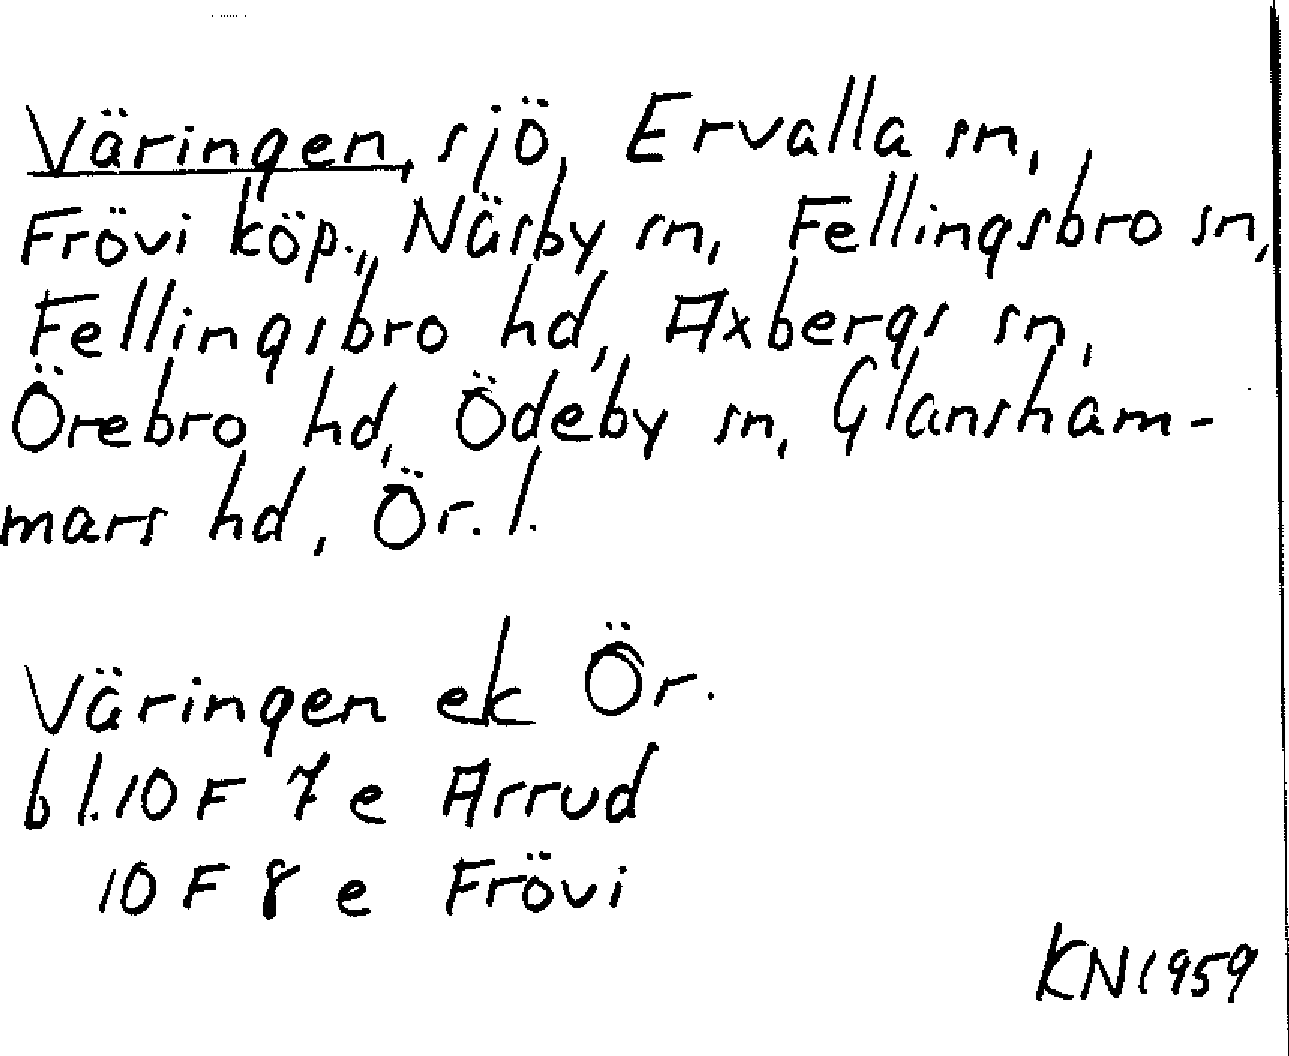 Väringen, sjö, Ervalla sn,
Frövi köp., Näsby sn, Fellingsbro sn,
Fellingsbro hd, Axbergs sn,
Örebro hd, Ödeby sn, Glansham-
mars hd, Ör. l.
Väringen ek Ör.
bl. 10 F 7 e Arrud
10 F 8 e Frövi
KN 1959